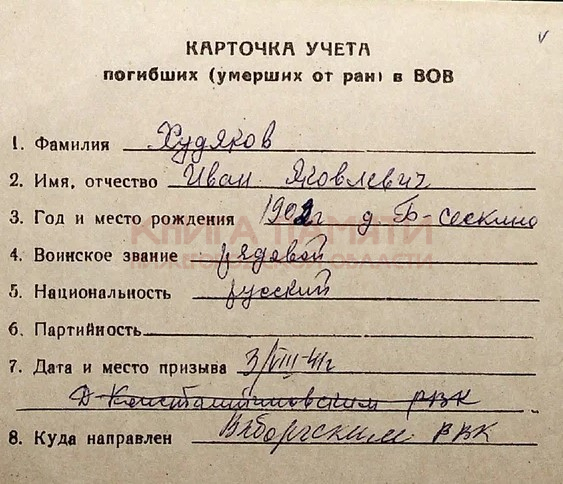 КАРТОЧКА УЧЕТА
погибших (умерших от ран) в ВОВ
1. Фамилия Худяков
2. Имя, отчество Иван Яковлевич
3. Год и место рождения 1902г д. Б-Сескино
КНИГА ПАМЯТИ
4. Воинское звание рядовой
НИЖЕГОРОДСКОЙ ОБЛАСТИ
5. Национальность русский
6. Партийность
7. Дата и место призыва 3/VIII-41г
Д-Константиновским РВК
8. Куда направлен Выборгским РВК